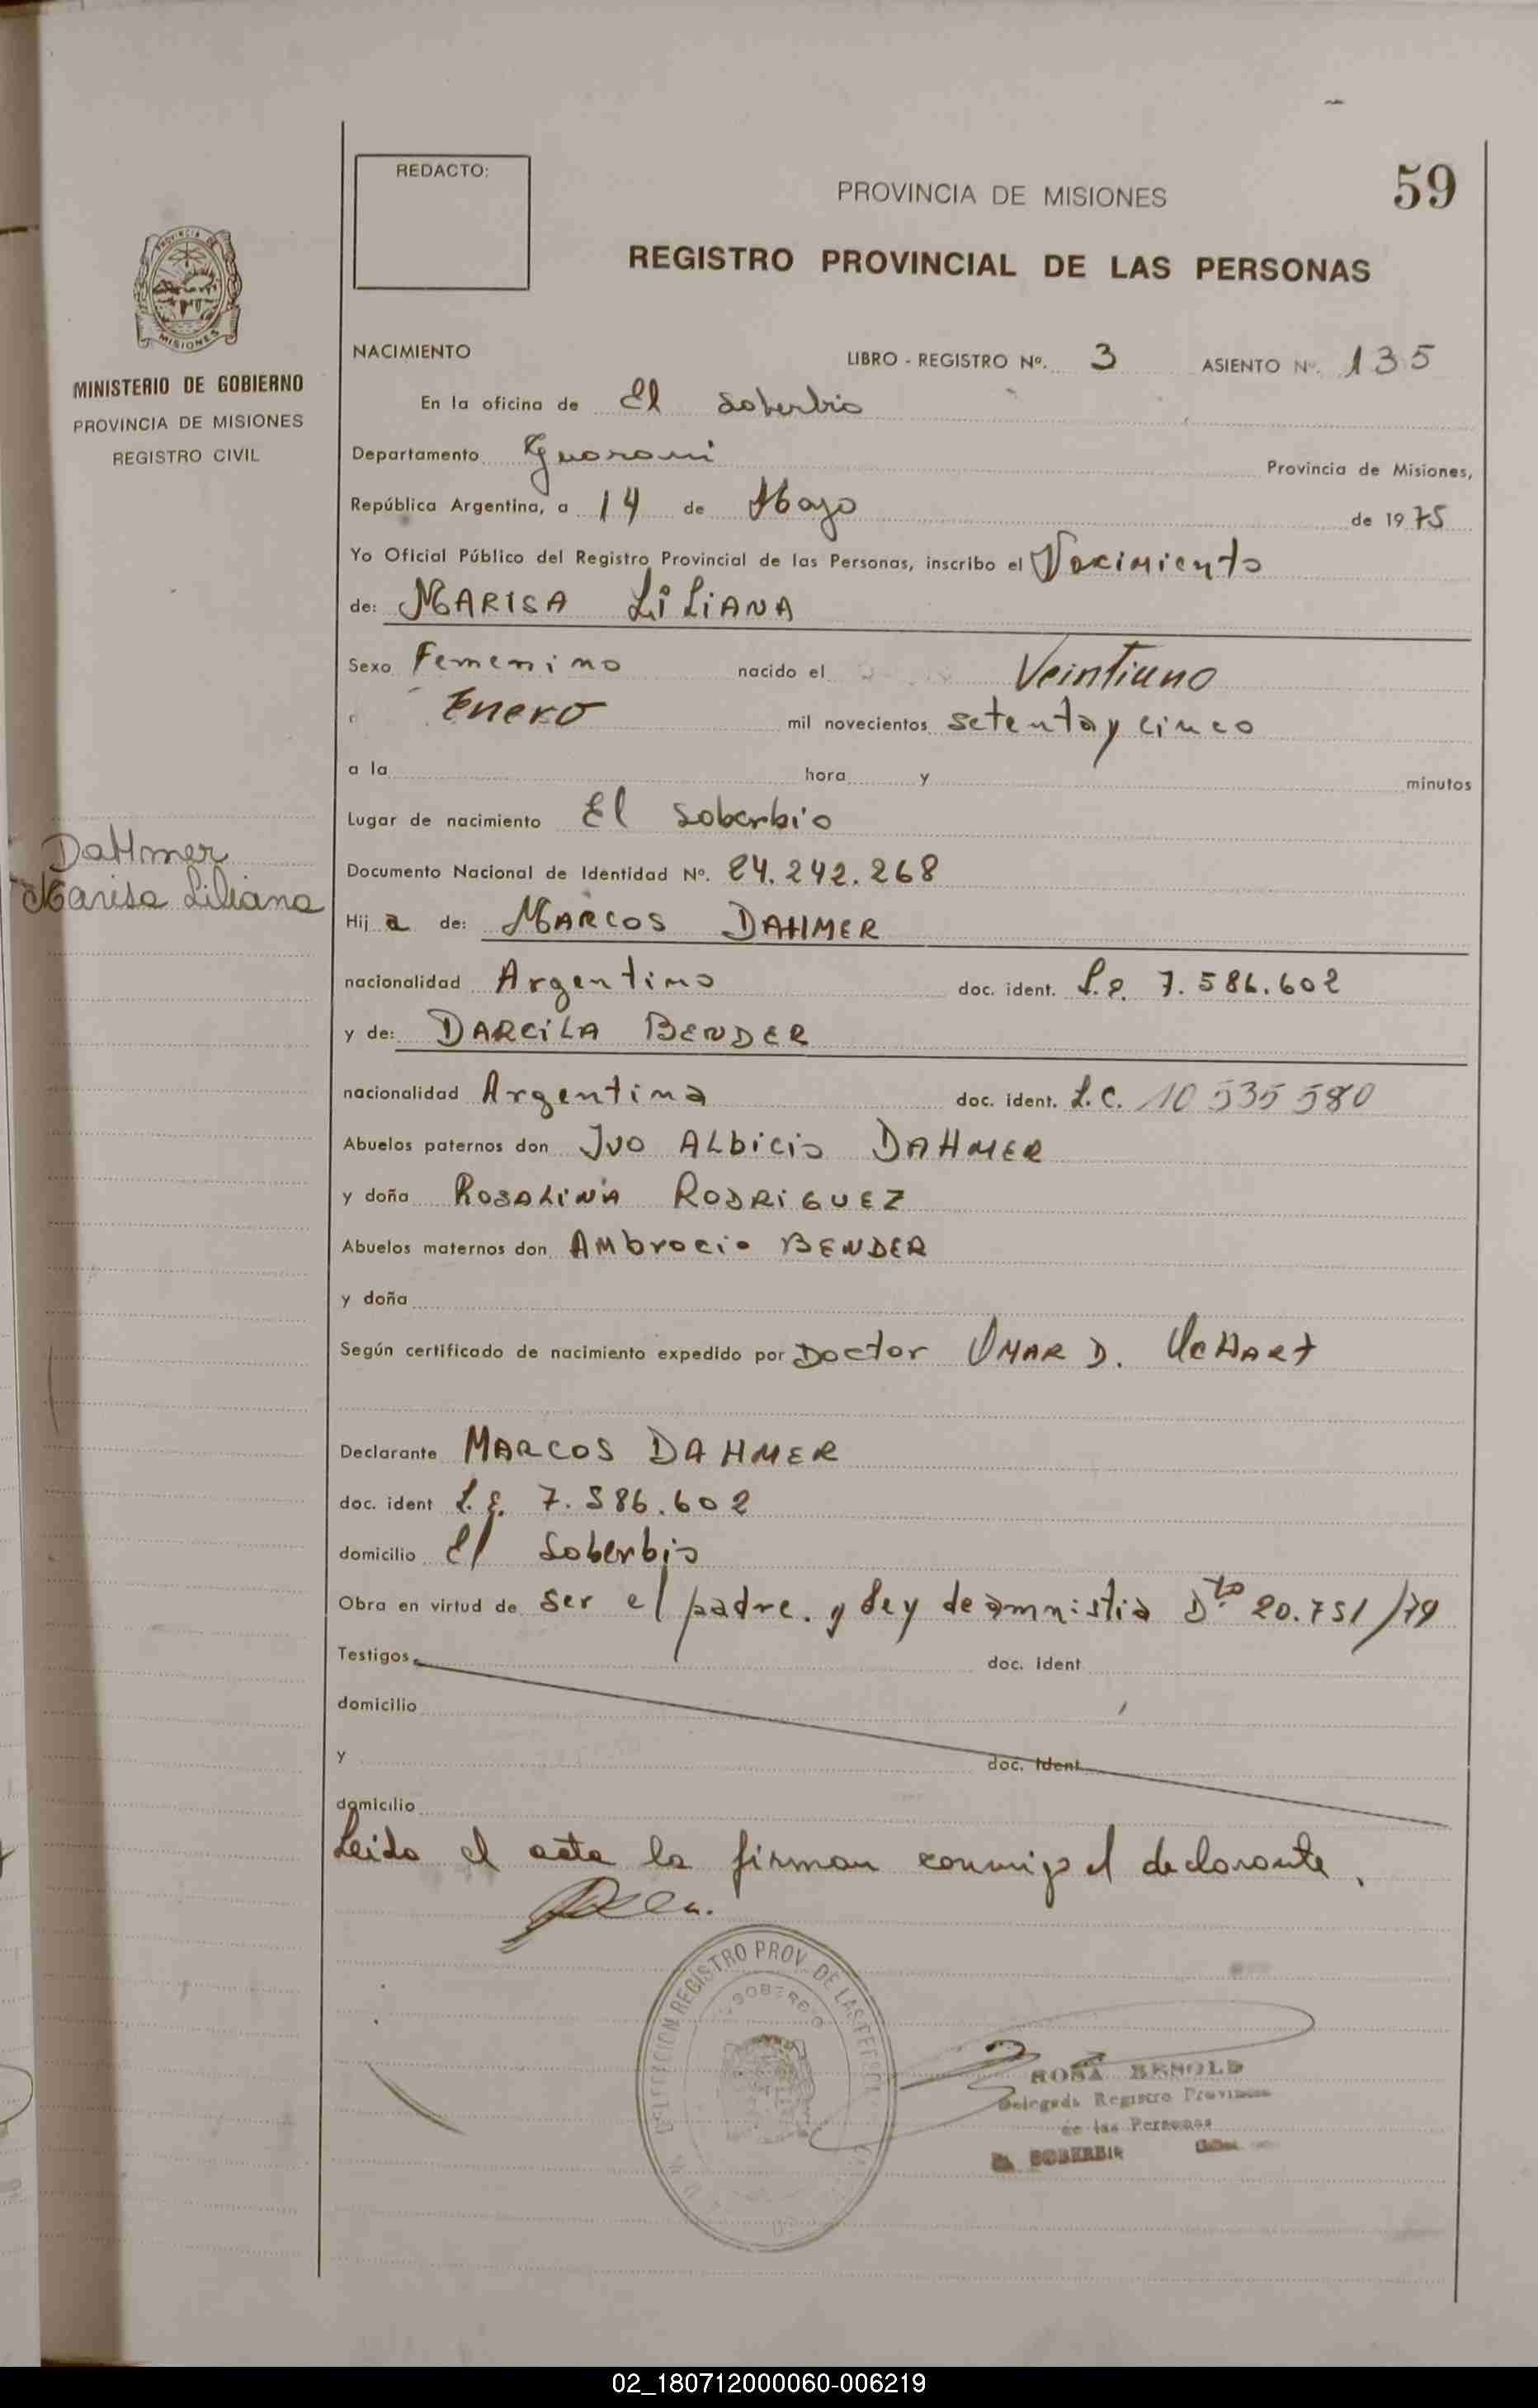 REDACTO:
PROVINCIA DE MISIONES
59
REGISTRO PROVINCIAL DE LAS PERSONAS
PROVINCIA DE
MISIONES
MINISTERIO DE GOBIERNO
PROVINCIA DE MISIONES
REGISTRO CIVIL
NACIMIENTO LIBRO - REGISTRO Nº. 3 ASIENTO Nº. 135
En la oficina de El Soberbio
Departamento Guarani Provincia de Misiones,
República Argentina, a 14 de Mayo de 1975
Yo Oficial Público del Registro Provincial de las Personas, inscribo el Nacimiento
de: MARISA LiLiANA
Sexo Femenino nacido el Veintiuno
Enero mil novecientos setenta y cinco
a la hora y minutos
Lugar de nacimiento El Soberbio
DaHmer
Marisa Liliana
Documento Nacional de Identidad Nº. 24.242.268
Hij a de: MARCOS DAHMER
nacionalidad Argentino doc. ident. L.e. 7.586.602
y de: DARCiLA BENDER
nacionalidad Argentina doc. ident. L.C. 10 535 580
Abuelos paternos don Ivo ALbicio DAHMER
y doña ROSALINA RODRiGUEZ
Abuelos maternos don AMbrocio BENDER
y doña
Según certificado de nacimiento expedido por Doctor OMAR D.
Declarante MARCOS DAHMER
doc. ident L.E. 7.586.602
domicilio El Soberbio
Obra en virtud de ser el padre. y Ley de amnistia Dto 20.751/79
Testigos doc. ident
domicilio
y doc. ident
domicilio
Leida el acta la firman conmigo el declarante.
REGISTRO PROV. DE LAS
ROSA BENOLD
Delegada Registro Provincial
de las Personas
EL SOBERBIO
02_180712000060-006219